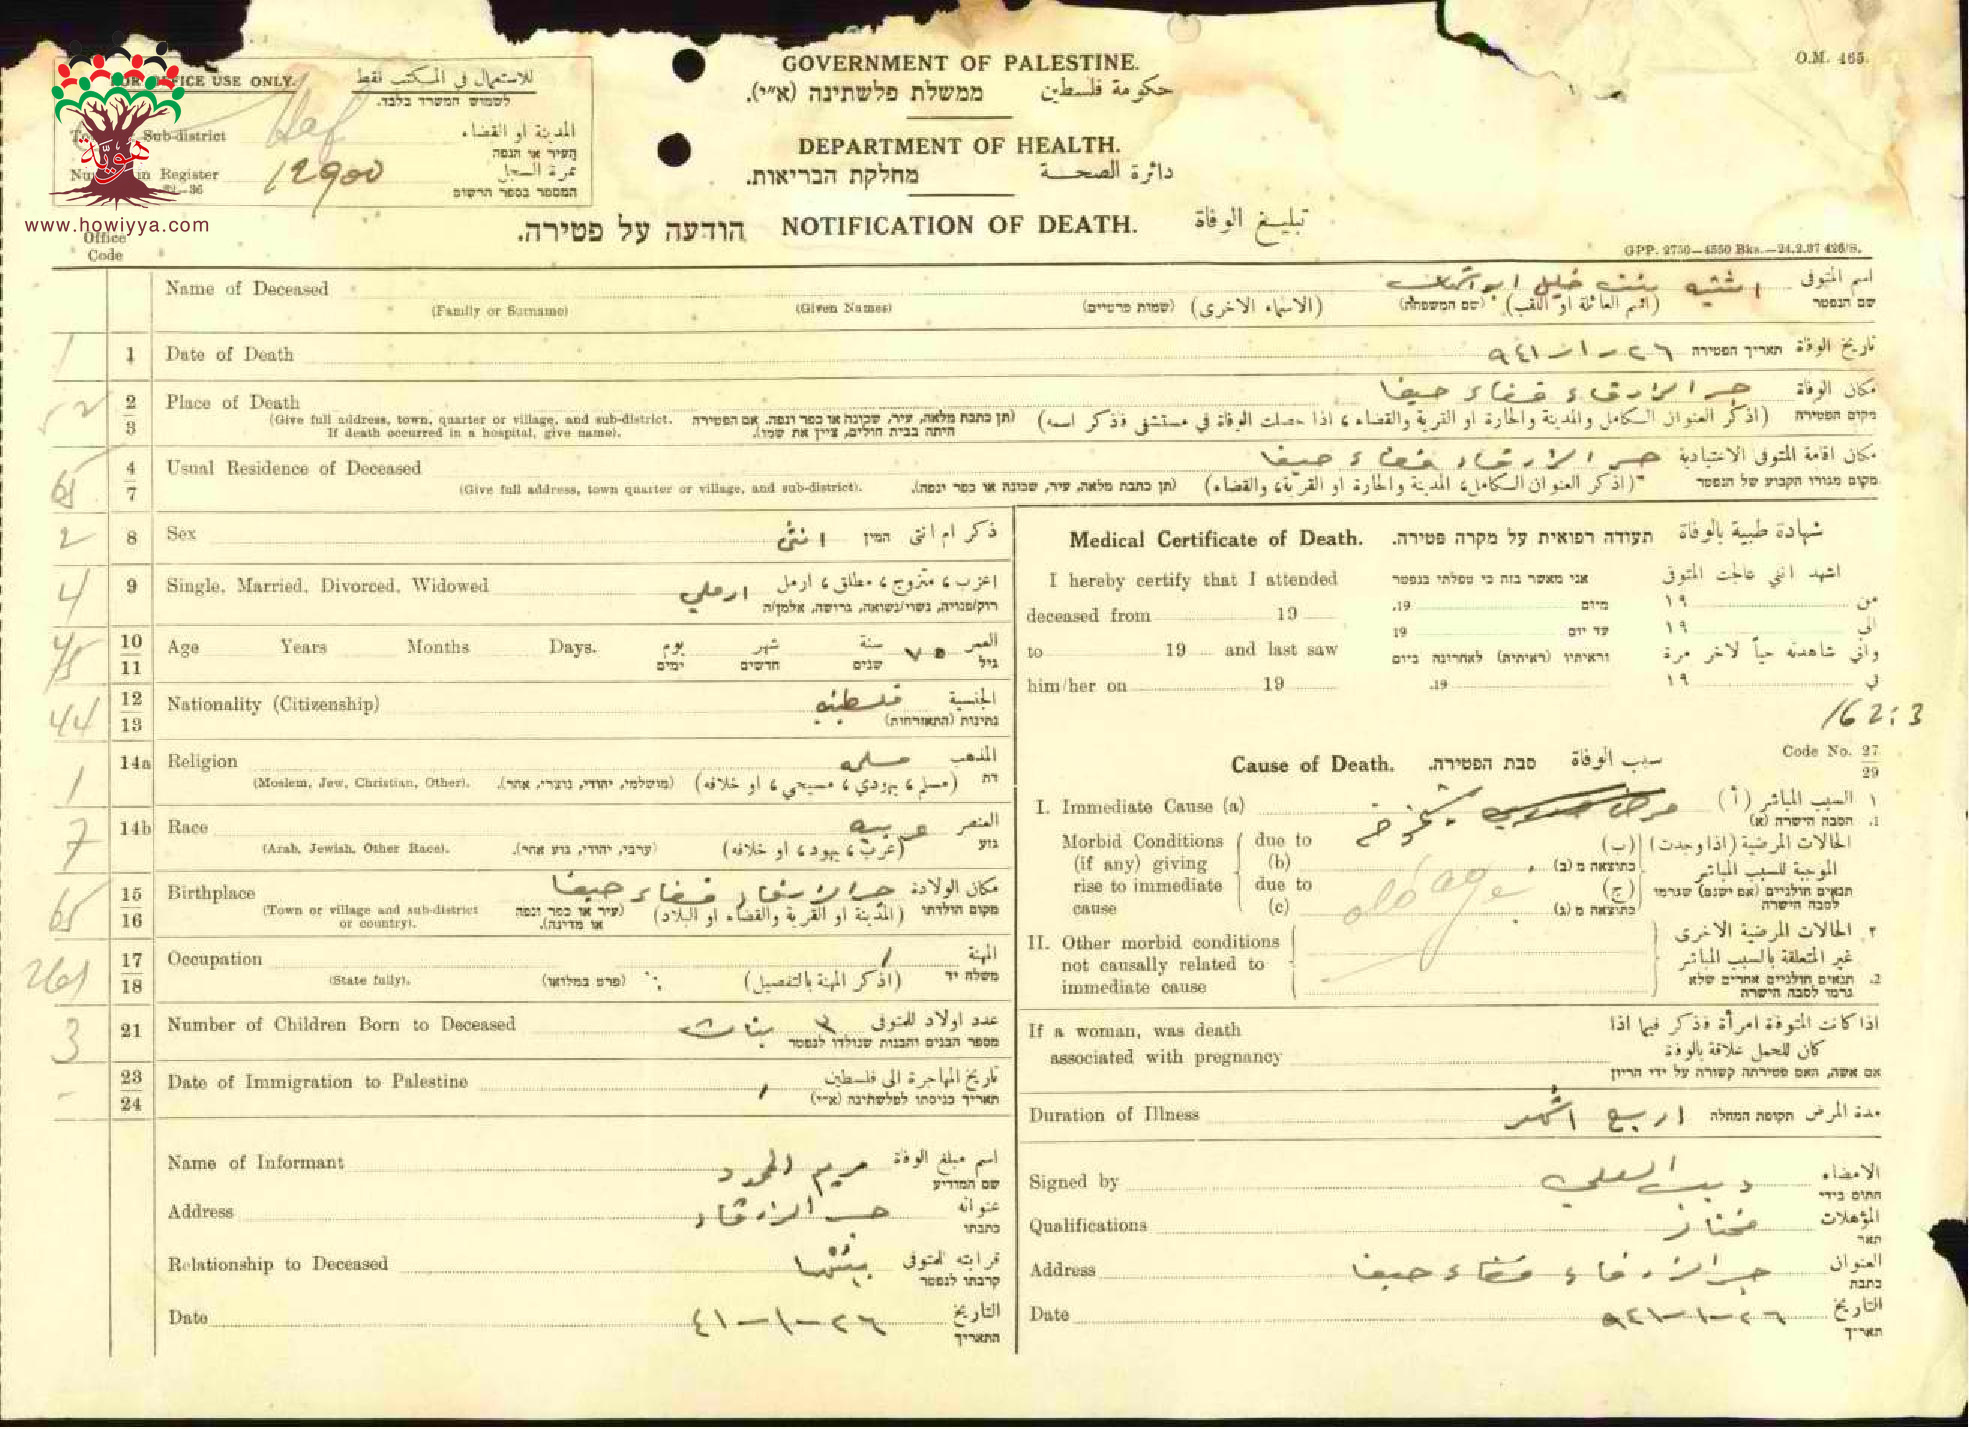 O.M. 465.
FOR OFFICE USE ONLY. للاستعمال في المكتب فقط
לשמוש המשרד בלבד.
Sub-district Haf المدينة او القضاء.
העיר או הנפה
in Register 12900 نمرة السجل
המספר בספר הרשום
www.howiyya.com
هوية
GOVERNMENT OF PALESTINE.
ממשלת פלשתינה (א״י). حكومة فلسطين
DEPARTMENT OF HEALTH.
מחלקת הבריאות. دائرة الصحة
הודעה על פטירה. NOTIFICATION OF DEATH. تبليغ الوفاة
GPP. 2750—4550 Bks.—24.2.37 426/S.
Office
Code
Name of Deceased بنت خليل ابو اسم المتوفى
(Family or Surname) (Given Names) (שמות פרטיים) (الاسماء الاخرى) (שם המשפחה) (اسم العائلة او اللقب) שם הנפטר
1 1 Date of Death ٢٦ - ١ - ٩٤١ תאריך הפטירה تاريخ الوفاة
52 2 3 Place of Death جسر الزرقاء قضاء حيفا مكان الوفاة
(Give full address, town, quarter or village, and sub-district. (תן כתבת מלאה, עיר, שכונה או כפר ונפה. אם הפטירה (اذكر العنوان الكامل والمدينة والحارة او القرية والقضاء، اذا حصلت الوفاة في مستشفى فذكر اسمه) מקום הפטירה
If death occurred in a hospital, give name). היתה בבית חולים, ציין את שמו).
65 4 7 Usual Residence of Deceased جسر الزرقاء قضاء حيفا مكان اقامة المتوفى الاعتيادية
(Give full address, town quarter or village, and sub-district). (תן כתבת מלאה, עיר, שכונה או כפר ונפה). (اذكر العنوان الكامل، المدينة والحارة او القرية، والقضاء) מקום מגורו הקבוע של הנפטר
2 8 Sex انثى המין ذكر ام انثى
4 9 Single, Married, Divorced, Widowed ارملي اعزب، متزوج، مطلق، ارمل
רוק/פנויה, נשוי/נשואה, גרושה, אלמן/ה
75 10 11 Age Years Months Days. يوم شهر سنة ٧٥ العمر
ימים חדשים שנים גיל
44 12 13 Nationality (Citizenship) الجنسية
נתינות (התאזרחות)
1 14a Religion مسلمه المذهب
(Moslem, Jew, Christian, Other). (מושלמי, יהודי, נוצרי, אחר). (مسلم، يهودي، مسيحي، او خلافه) דת
7 14b Race عربيه العنصر
(Arab, Jewish, Other Race). (ערבי, יהודי, גזע אחר). (عرب، يهود، او خلافه) גזע
65 15 16 Birthplace جسر الزرقاء قضاء حيفا مكان الولادة
(Town or village and sub-district (עיר או כפר ונפה (المدينة او القرية والقضاء او البلاد) מקום הולדתו
or country). או מדינה).
261 17 18 Occupation / المهنة
(State fully). (פרט במלואו) (اذكر المهنة بالتفصيل) משלח יד
3 21 Number of Children Born to Deceased ٣ بنات عدد اولاد للمتوفى
מספר הבנים והבנות שנולדו לנפטר
- 23 24 Date of Immigration to Palestine / تاريخ المهاجرة الى فلسطين
תאריך כניסתו לפלשתינה (א״י)
Name of Informant مريم المحمود اسم مبلغ الوفاة
שם המודיע
Address جسر الزرقاء عنوانه
כתבתו
Relationship to Deceased بنتها قرابته للمتوفى
קרבתו לנפטר
Date ٢٦ - ١ - ٤١ التاريخ
התאריך
Medical Certificate of Death. תעודה רפואית על מקרה פטירה. شهادة طبية بالوفاة
I hereby certify that I attended אני מאשר בזה כי טפלתי בנפטר اشهد انني عالجت المتوفى
deceased from 19 מיום 19. من ١٩
to 19 and last saw עד יום 19 الى ١٩
וראיתיו (ראיתיה) לאחרונה ביום واني شاهدته حياً لاخر مرة
him/her on 19 19. في ١٩
162:3
Code No. 27 29
Cause of Death. סבת הפטירה. سبب الوفاة
I. Immediate Cause (a) مرض شيخوخة ١ السبب المباشر (أ)
1. הסבה הישרה (א)
Morbid Conditions due to الحالات المرضية (اذا وجدت) (ب)
(if any) giving (b) כתוצאה מ (ב) الموجبة للسبب المباشر
rise to immediate due to (ج) תנאים חולניים (אם ישנם) שגרמו
cause (c) כתוצאה מ (ג) לסבה הישרה
old age
II. Other morbid conditions ٢. الحالات المرضية الاخرى
not causally related to غير المتعلقة بالسبب المباشر
immediate cause 2. תנאים חולניים אחרים שלא
גרמו לסבה הישרה
If a woman, was death اذا كانت المتوفة امرأة فذكر فيما اذا
associated with pregnancy كان للحمل علاقة بالوفاة
אם אשה, האם פטירתה קשורה על ידי הריון
Duration of Illness اربع اشهر תקופת המחלה مدة المرض
Signed by ديب العلي الامضاء
חתום בידי
Qualifications مختار المؤهلات
תאר
Address جسر الزرقاء قضاء حيفا العنوان
כתבת
Date ٢٦ - ١ - ٩٤١ التاريخ
תאריך